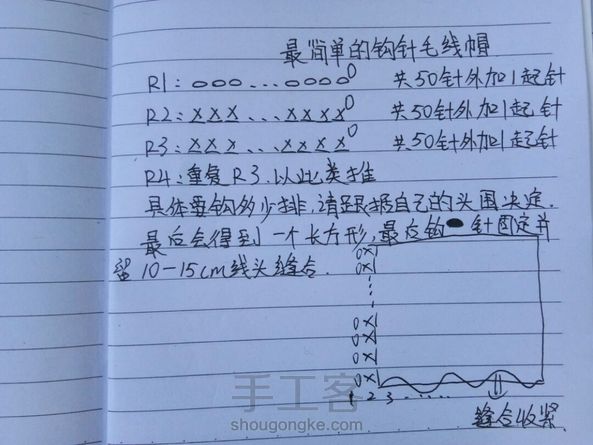 最简单的钩针毛线帽
R1: ooo...oooo0 共50针外加1起针
R2: xxx...xxxx0 共50针外加1起针
R3: xxx...xxxx0 共50针外加1起针
R4: 重复R3.以此类推
具体要钩多少排,请跟据自己的头围决定.
最后会得到一个长方形,最后钩●针固定并
留10-15cm线头缝合.
0x
0x
0x
0x
0x
0x
1 2 3 ......
缝合收紧
手工客
shougongke.com